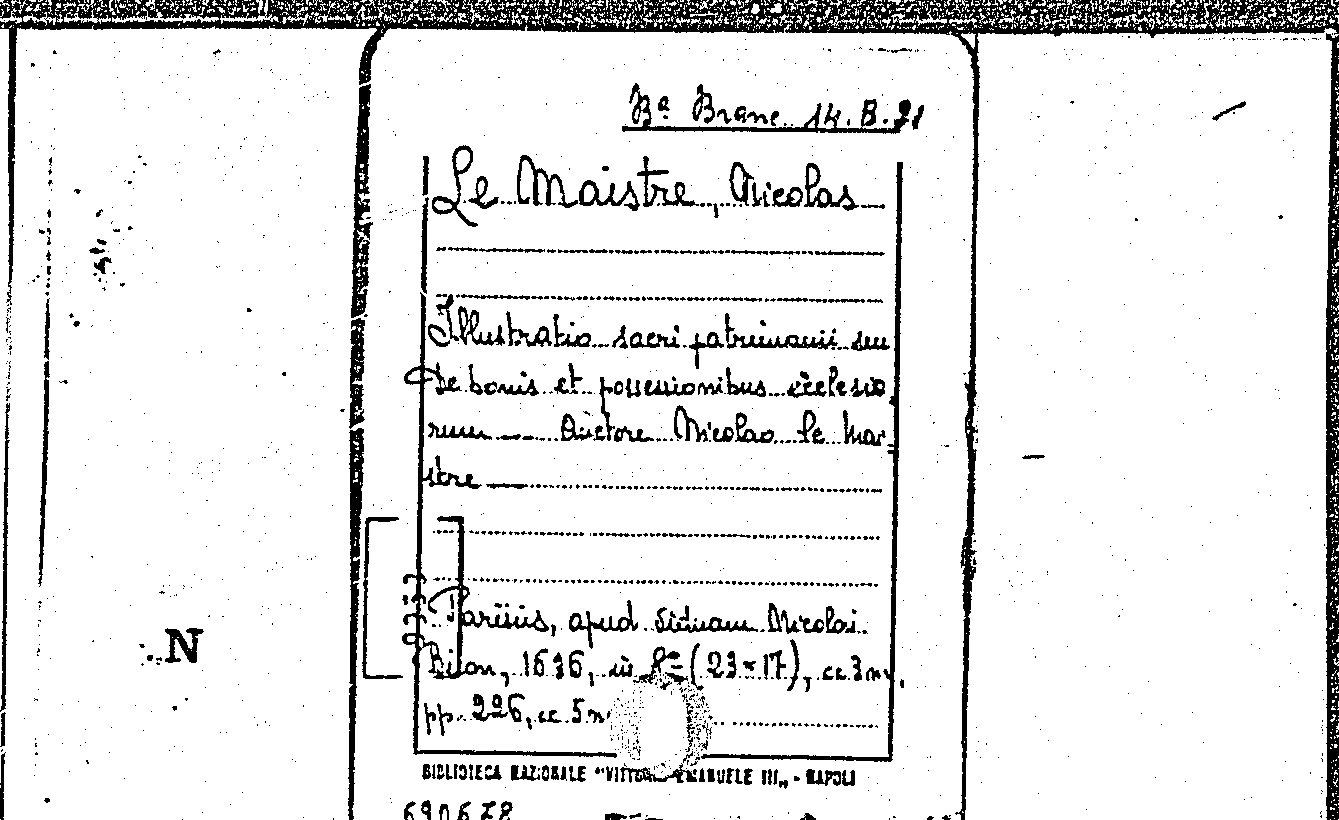 Bª Branc. 14. B. 21
Le Maistre, Nicolas
Illustratio sacri patrimonii seu
De bonis et possessionibus ecclesia
rum — Auctore Nicolao le Mai=
stre —
Parisiis, apud viduam Nicolai
Bison, 1636, in 8º (23×17), cc 3 nn.
pp. 226, cc. 5 n
BIBLIOTECA NAZIONALE "VITTORIO EMANUELE III„ - NAPOLI
690678
N